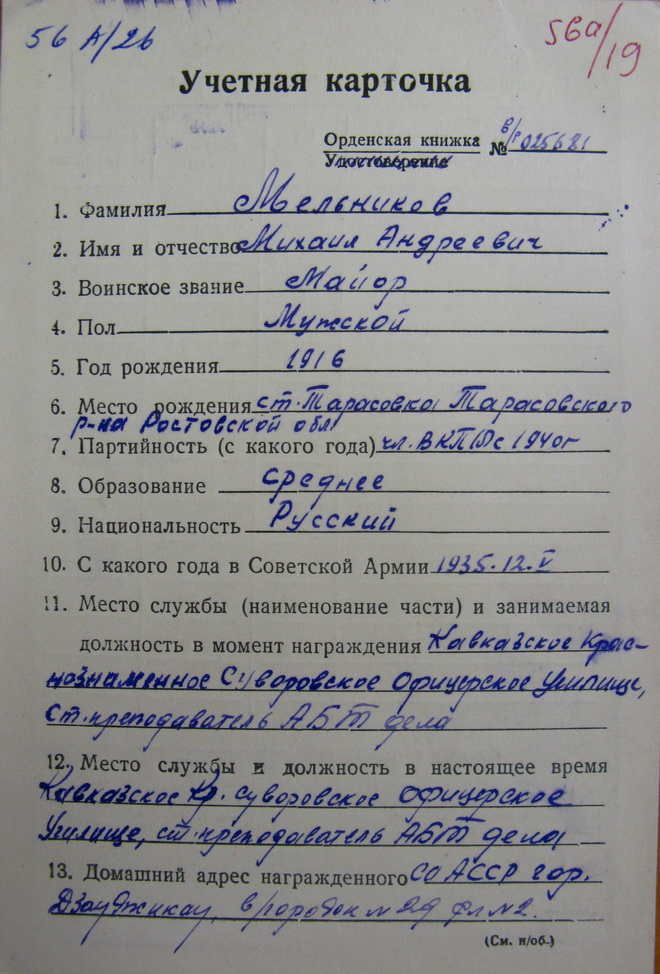 56 А/26
56а/19
Учетная карточка
Орденская книжка № в/г 025681
Удостоверение
1. Фамилия Мельников
2. Имя и отчество Михаил Андреевич
3. Воинское звание Майор
4. Пол Мужской
5. Год рождения 1916
6. Место рождения ст. Тарасовка Тарасовского
р-на Ростовской обл
7. Партийность (с какого года) чл. ВКП(б) с 1940г
8. Образование среднее
9. Национальность Русский
10. С какого года в Советской Армии 1935.12.V
11. Место службы (наименование части) и занимаемая
должность в момент награждения Кавказское Крас-
нознаменное Суворовское Офицерское Училище,
ст. преподаватель АБТ дела
12. Место службы и должность в настоящее время
Кавказское Кр. Суворовское Офицерское
Училище, ст. преподаватель АБТ дела
13. Домашний адрес награжденного СО АССР гор.
Дзауджикау, в/городок №
(См. н/об.)